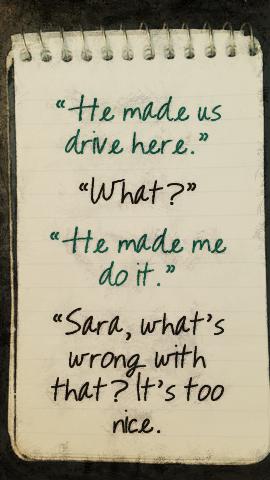 “He made us
drive here.”
“What?”
“He made me
do it.”
“Sara, what’s
wrong with
that? It’s too
nice.